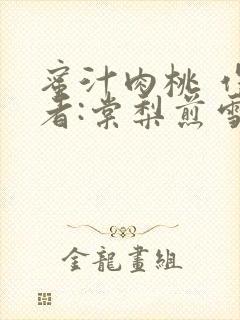 蜜汁肉桃 作
者:棠梨煎雪
金龍畫組